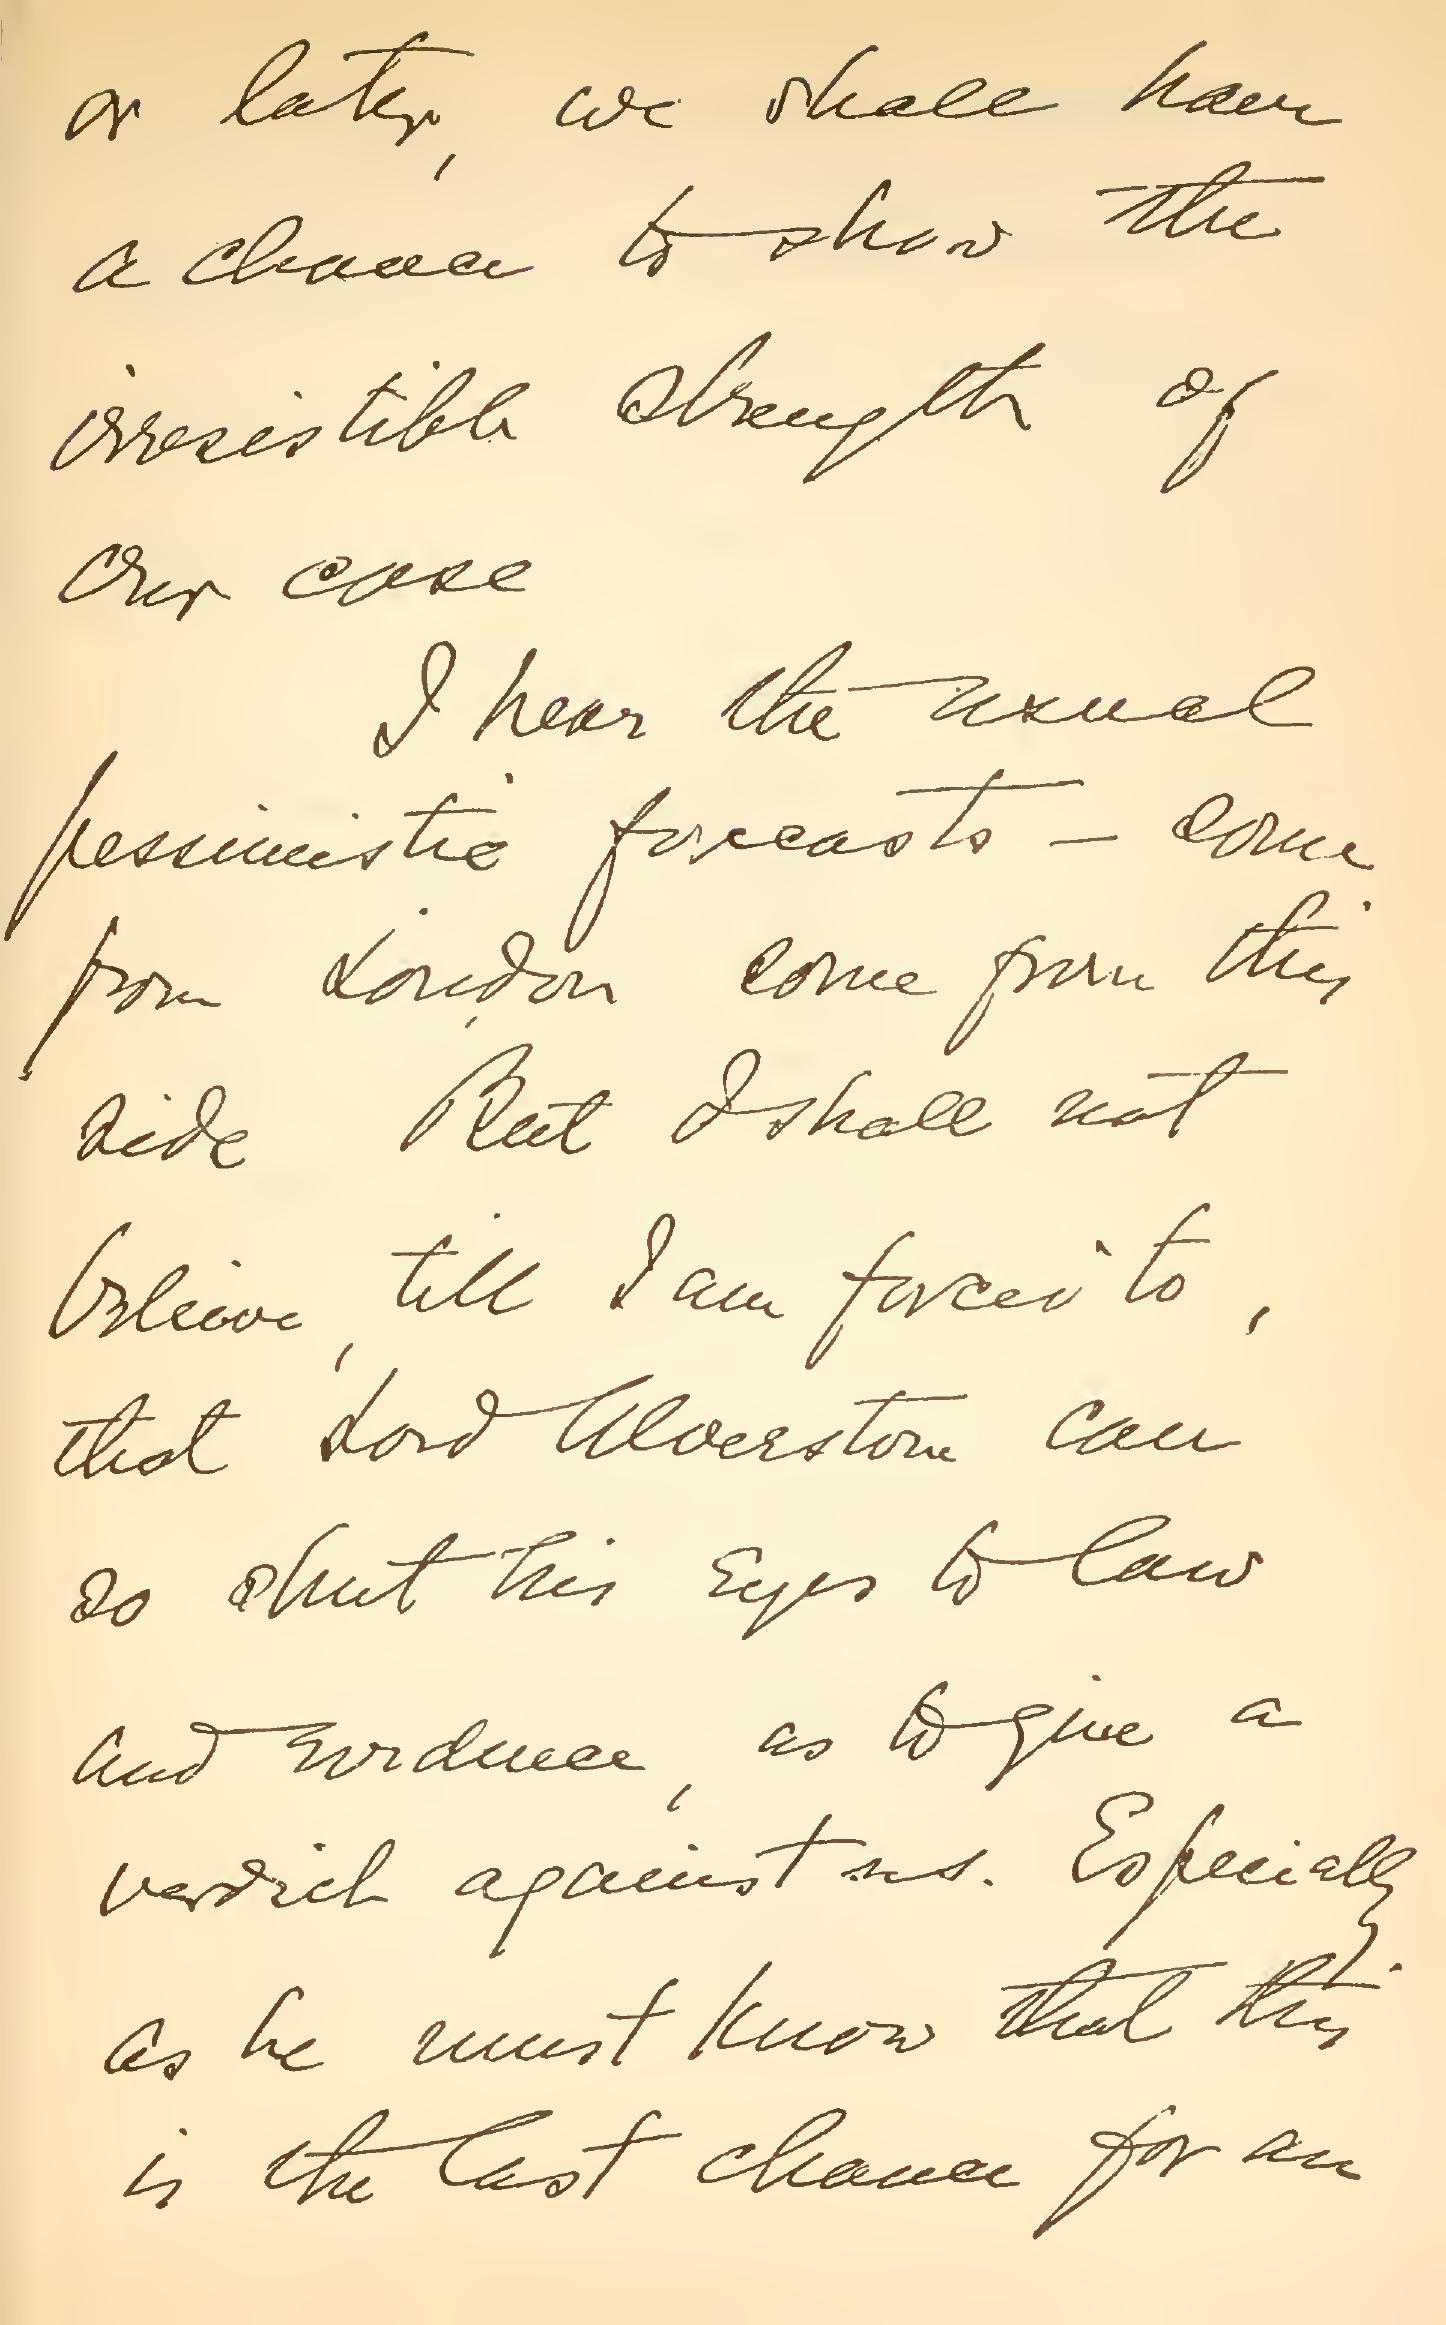 or later, we shall have
a chance to show the
irresistible strength of
our case
I hear the usual
pessimistic forecasts – some
from London some from this
side But I shall not
believe, till I am forced to,
that Lord Alverstone can
so shut his eyes to law
and evidence, as to give a
verdict against us. Especially
as he must know that this
is the last chance for an